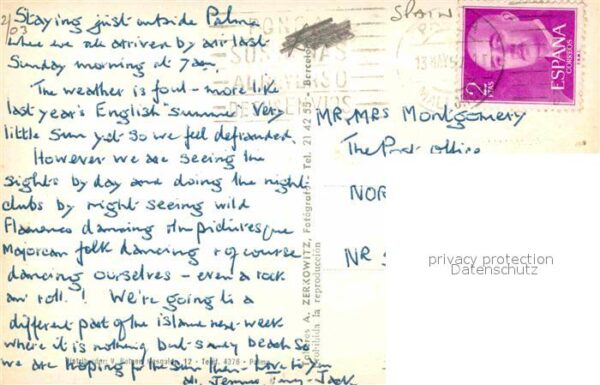 Staying just outside Palma
where we all arrived by air last
Sunday morning at 7am.
The weather is foul - more like
last year's English summer. Very
little Sun yet. So we feel defrauded.
However we are seeing the
sights by day and doing the night
clubs by night seeing wild
Flamenco dancing the picturesque
Majorcan folk dancing & of course
dancing ourselves - even a rock
an' roll.! We're going to a
different part of the island next week
where it is nothing but sandy beach so
we are hoping for the Sun then - Love to You
all. Jack
2/03
SPAIN
2 PTAS
ESPAÑA
CORREOS
PONGA
SUS SEÑAS
AL DORSO
DE SUS ENVIOS
MR, MRS Montgomery
The Post Office
NOR
NR
A. ZERKOWITZ, Fotógrafo - Tel. 21 42 55 - Barcelona
Prohibida la reproducción
Distribuidor: 12 - Teléf. 4376 - Palma
privacy protection
Datenschutz